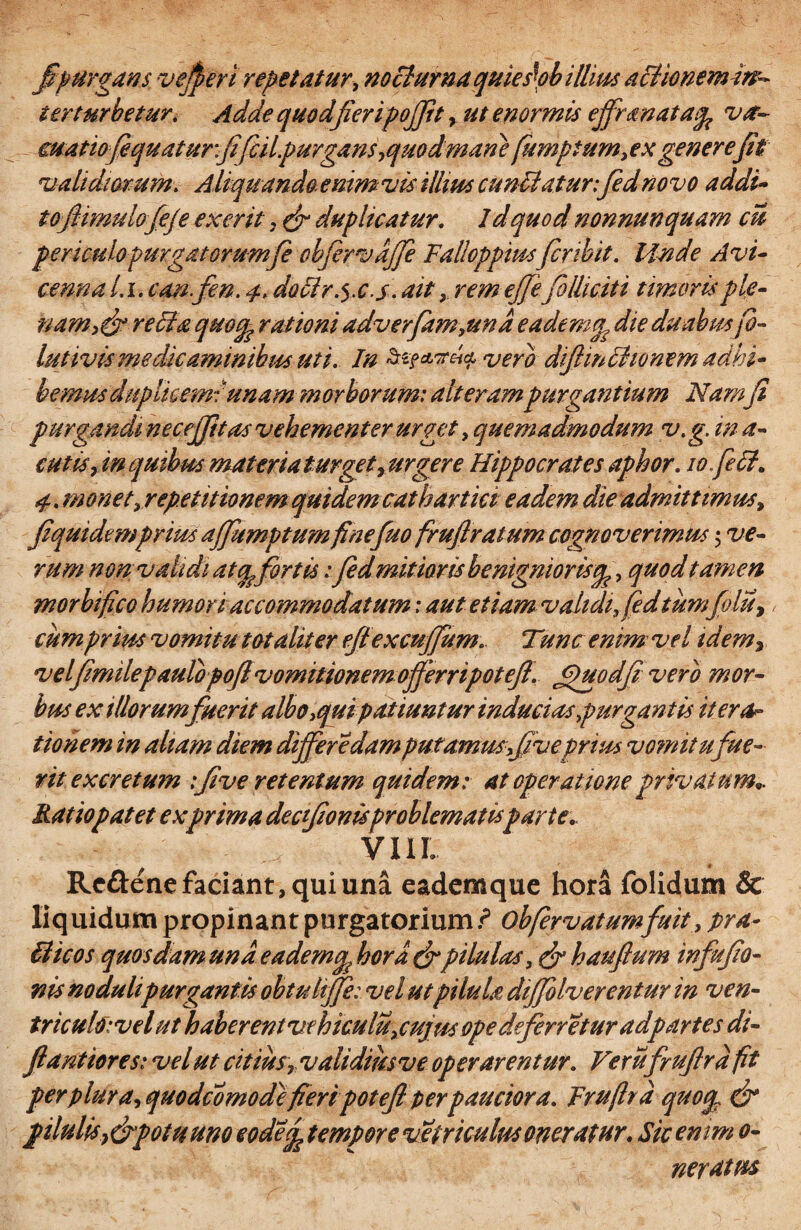 ſi purgans veſperi repetatur, nocturna quies ob illius actionem in-
terturbetur. Adde quod fieri poſſit, ut enormis effrænataq; va-
cuatio ſequatur: ſi ſcil. purgans, quod mane ſumptum, ex genere ſit
validiorum. Aliquando enim vis illius cunctatur: ſed novo addi-
to ſtimulo ſeſe exerit, & duplicatur. Id quod nonnunquam cū
periculo purgatorum ſe obſervaſſe Falloppius ſcribit. Unde Avi-
cenna l.1. can. fen. 4. doctr. 5. c. 5. ait, rem eſſe ſolliciti timoris ple-
nam, & rectæ quoq; rationi adverſam, unâ eademq; die duabus ſo-
lutivis medicaminibus uti. In θεραπείᾳ verò diſtinctionem adhi-
bemus duplicem: unam morborum: alteram purgantium Nam ſi
purgandi neceſſitas vehementer urget, quemadmodum v. g. in a-
cutis, in quibus materia turget, urgere Hippocrates aphor. 10. ſect.
4. monet, repetitionem quidem cathartici eadem die admittimus,
ſiquidem prius aſſumptum fine ſuo fruſtratum cognoverimus; ve-
rum non validi atq; fortis: ſed mitioris benigniorisq;, quod tamen
morbifico humori accommodatum: aut etiam validi, ſed tùm ſolū,
cùm prius vomitu totaliter eſt excuſſum. Tunc enim vel idem,
vel ſimile paulò poſt vomitionem offerri poteſt. Quod ſi verò mor-
bus ex illorum fuerit albo, qui patiuntur inducias, purgantis itera-
tionem in aliam diem differēdam putamus, ſive prius vomitu fue-
rit excretum: ſive retentum quidem: at operatione privatum.
Ratio patet ex prima deciſionis problematis parte.
VIII.
Recténe faciant, qui unâ eademque horâ ſolidum &
liquidum propinant purgatorium? Obſervatum fuit, pra-
cticos quosdam unâ eademq; horâ & pilulas, & hauſtum infuſio-
nis noduli purgantis obtuliſſe: vel ut pilulæ diſſolverentur in ven-
triculô: vel ut haberent vehiculū, cujus ope deferrētur ad partes di-
ſtantiores: vel ut citiùs, validiùsve operarentur. Verū fruſtrà fit
per plura, quod cōmodè fieri poteſt per pauciora. Fruſtrà quoq; &
pilulis, & potu uno eodēq; tempore vētriculus oneratur. Sic enim o-
neratus